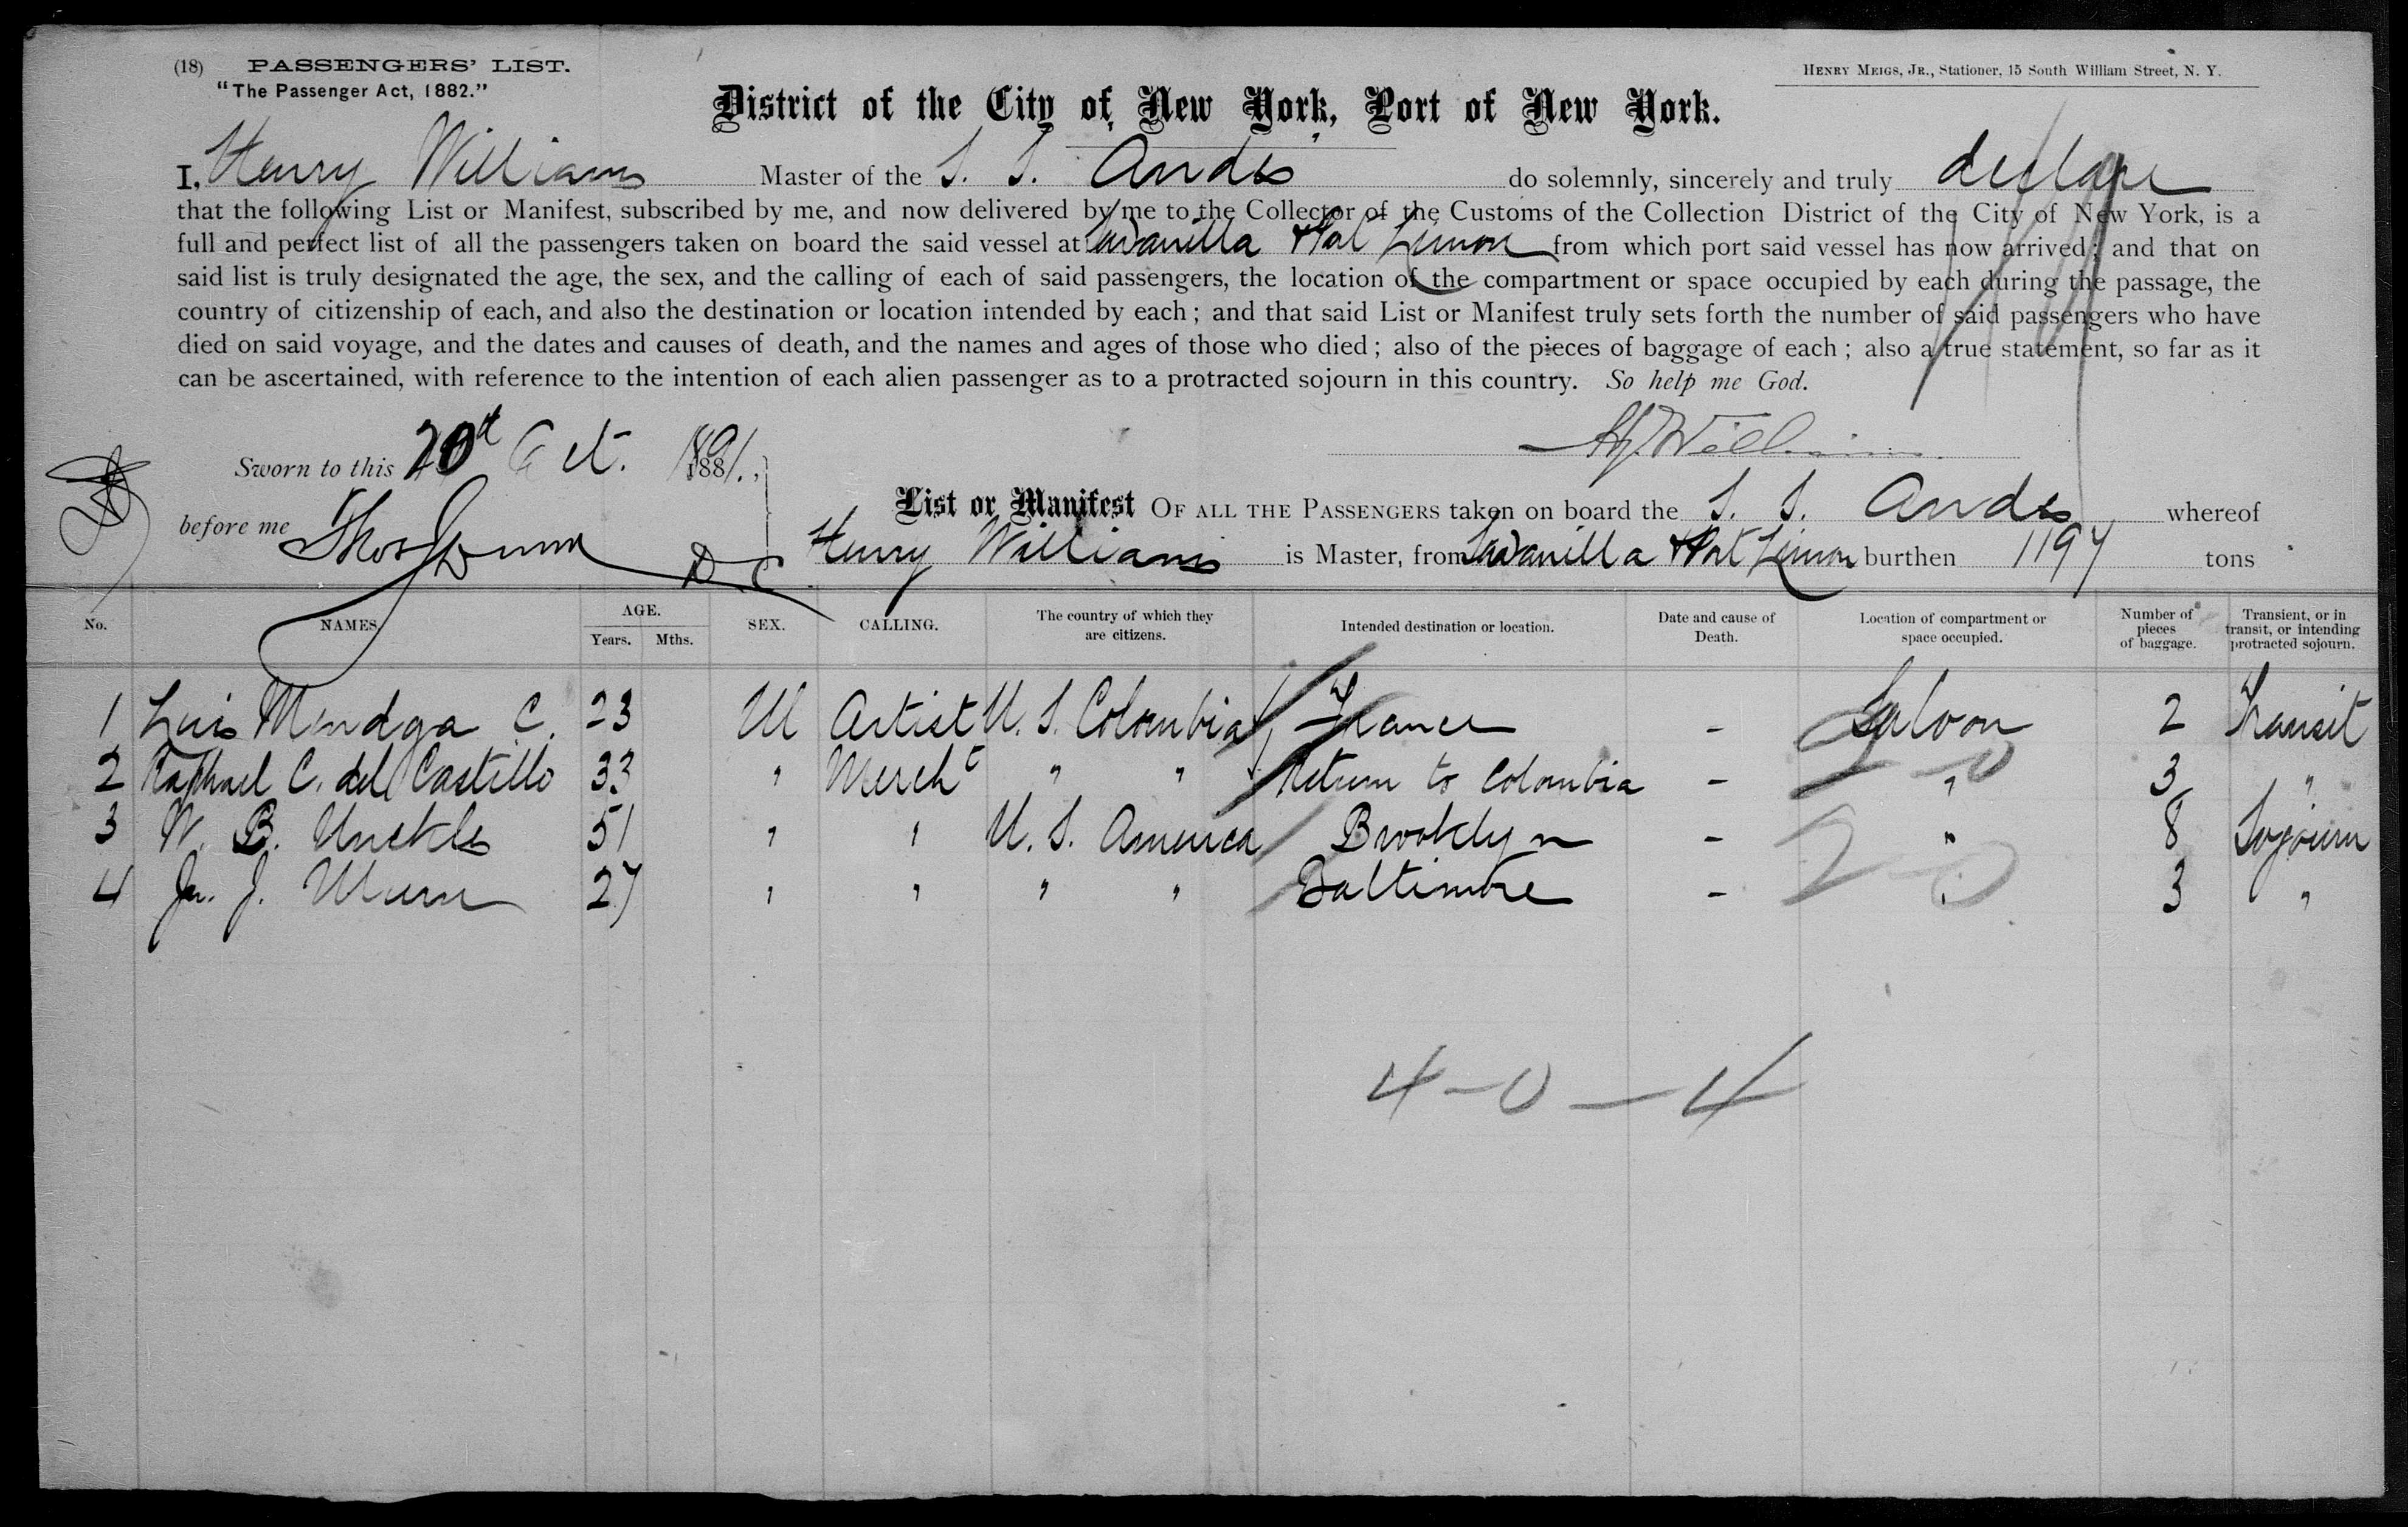 (18) PASSENGERS' LIST.
"The Passenger Act, 1882."
HENRY MEIGS, JR., Stationer, 15 South William Street, N. Y.
District of the City of New York, Port of New York.
I, Henry Williams Master of the S. S. Andes do solemnly, sincerely and truly declare
that the following List or Manifest, subscribed by me, and now delivered by me to the Collector of the Customs of the Collection District of the City of New York, is a
full and perfect list of all the passengers taken on board the said vessel at Savanilla & Port Limon from which port said vessel has now arrived; and that on
said list is truly designated the age, the sex, and the calling of each of said passengers, the location of the compartment or space occupied by each during the passage, the
country of citizenship of each, and also the destination or location intended by each; and that said List or Manifest truly sets forth the number of said passengers who have
died on said voyage, and the dates and causes of death, and the names and ages of those who died; also of the pieces of baggage of each; also a true statement, so far as it
can be ascertained, with reference to the intention of each alien passenger as to a protracted sojourn in this country. So help me God.
H. Williams
Sworn to this 20th Oct. 1891.,
before me Thos
List or Manifest OF ALL THE PASSENGERS taken on board the S. S. Andes whereof
Henry Williams is Master, from Savanilla & Port Limon burthen 1197 tons
No. NAMES. AGE. Years. Mths. SEX. CALLING. The country of which they are citizens. Intended destination or location. Date and cause of Death. Location of compartment or space occupied. Number of pieces of baggage. Transient, or in transit, or intending protracted sojourn.
1 Luis Mendoza C. 23 M Artist U. S. Colombia France - Saloon 2 Transit
2 Raphael C. del Castillo 33 " Mercht " " Return to Colombia - " 3 "
3 W. B. Unckles 51 " " U. S. America Brooklyn - " 8 Sojourn
4 Jn. J. 27 " " " " Baltimore - " 3 "
2-0
2-0
4-0-4